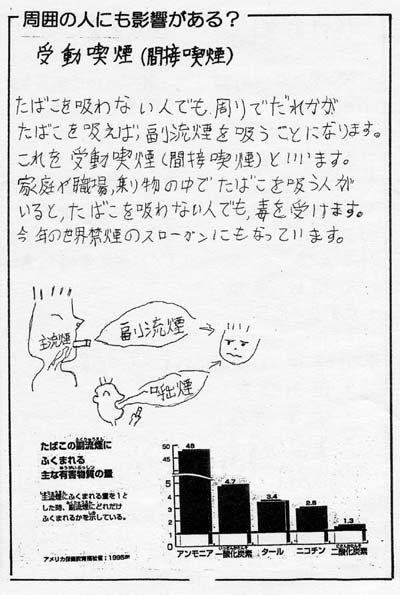 周囲の人にも影響がある?
受動喫煙(間接喫煙)
たばこを吸わない人でも、周りでだれかが
たばこを吸えば、副流煙を吸うことになります。
これを受動喫煙(間接喫煙)といいます。
家庭や職場,乗り物の中でたばこを吸う人が
いると,たばこを吸わない人でも,毒を受けます。
今年の世界禁煙のスローガンにもなっています。
主流煙
副流煙
呼出煙
たばこの副流煙に
ふくまれる
主な有害物質の量
主流煙にふくまれる量を1と
した時、副流煙にどれだけ
ふくまれるかを示している。
50
45
5
4
3
2
1
0
46
4.7
3.4
2.8
1.3
アンモニア
一酸化炭素
タール
ニコチン
二酸化炭素